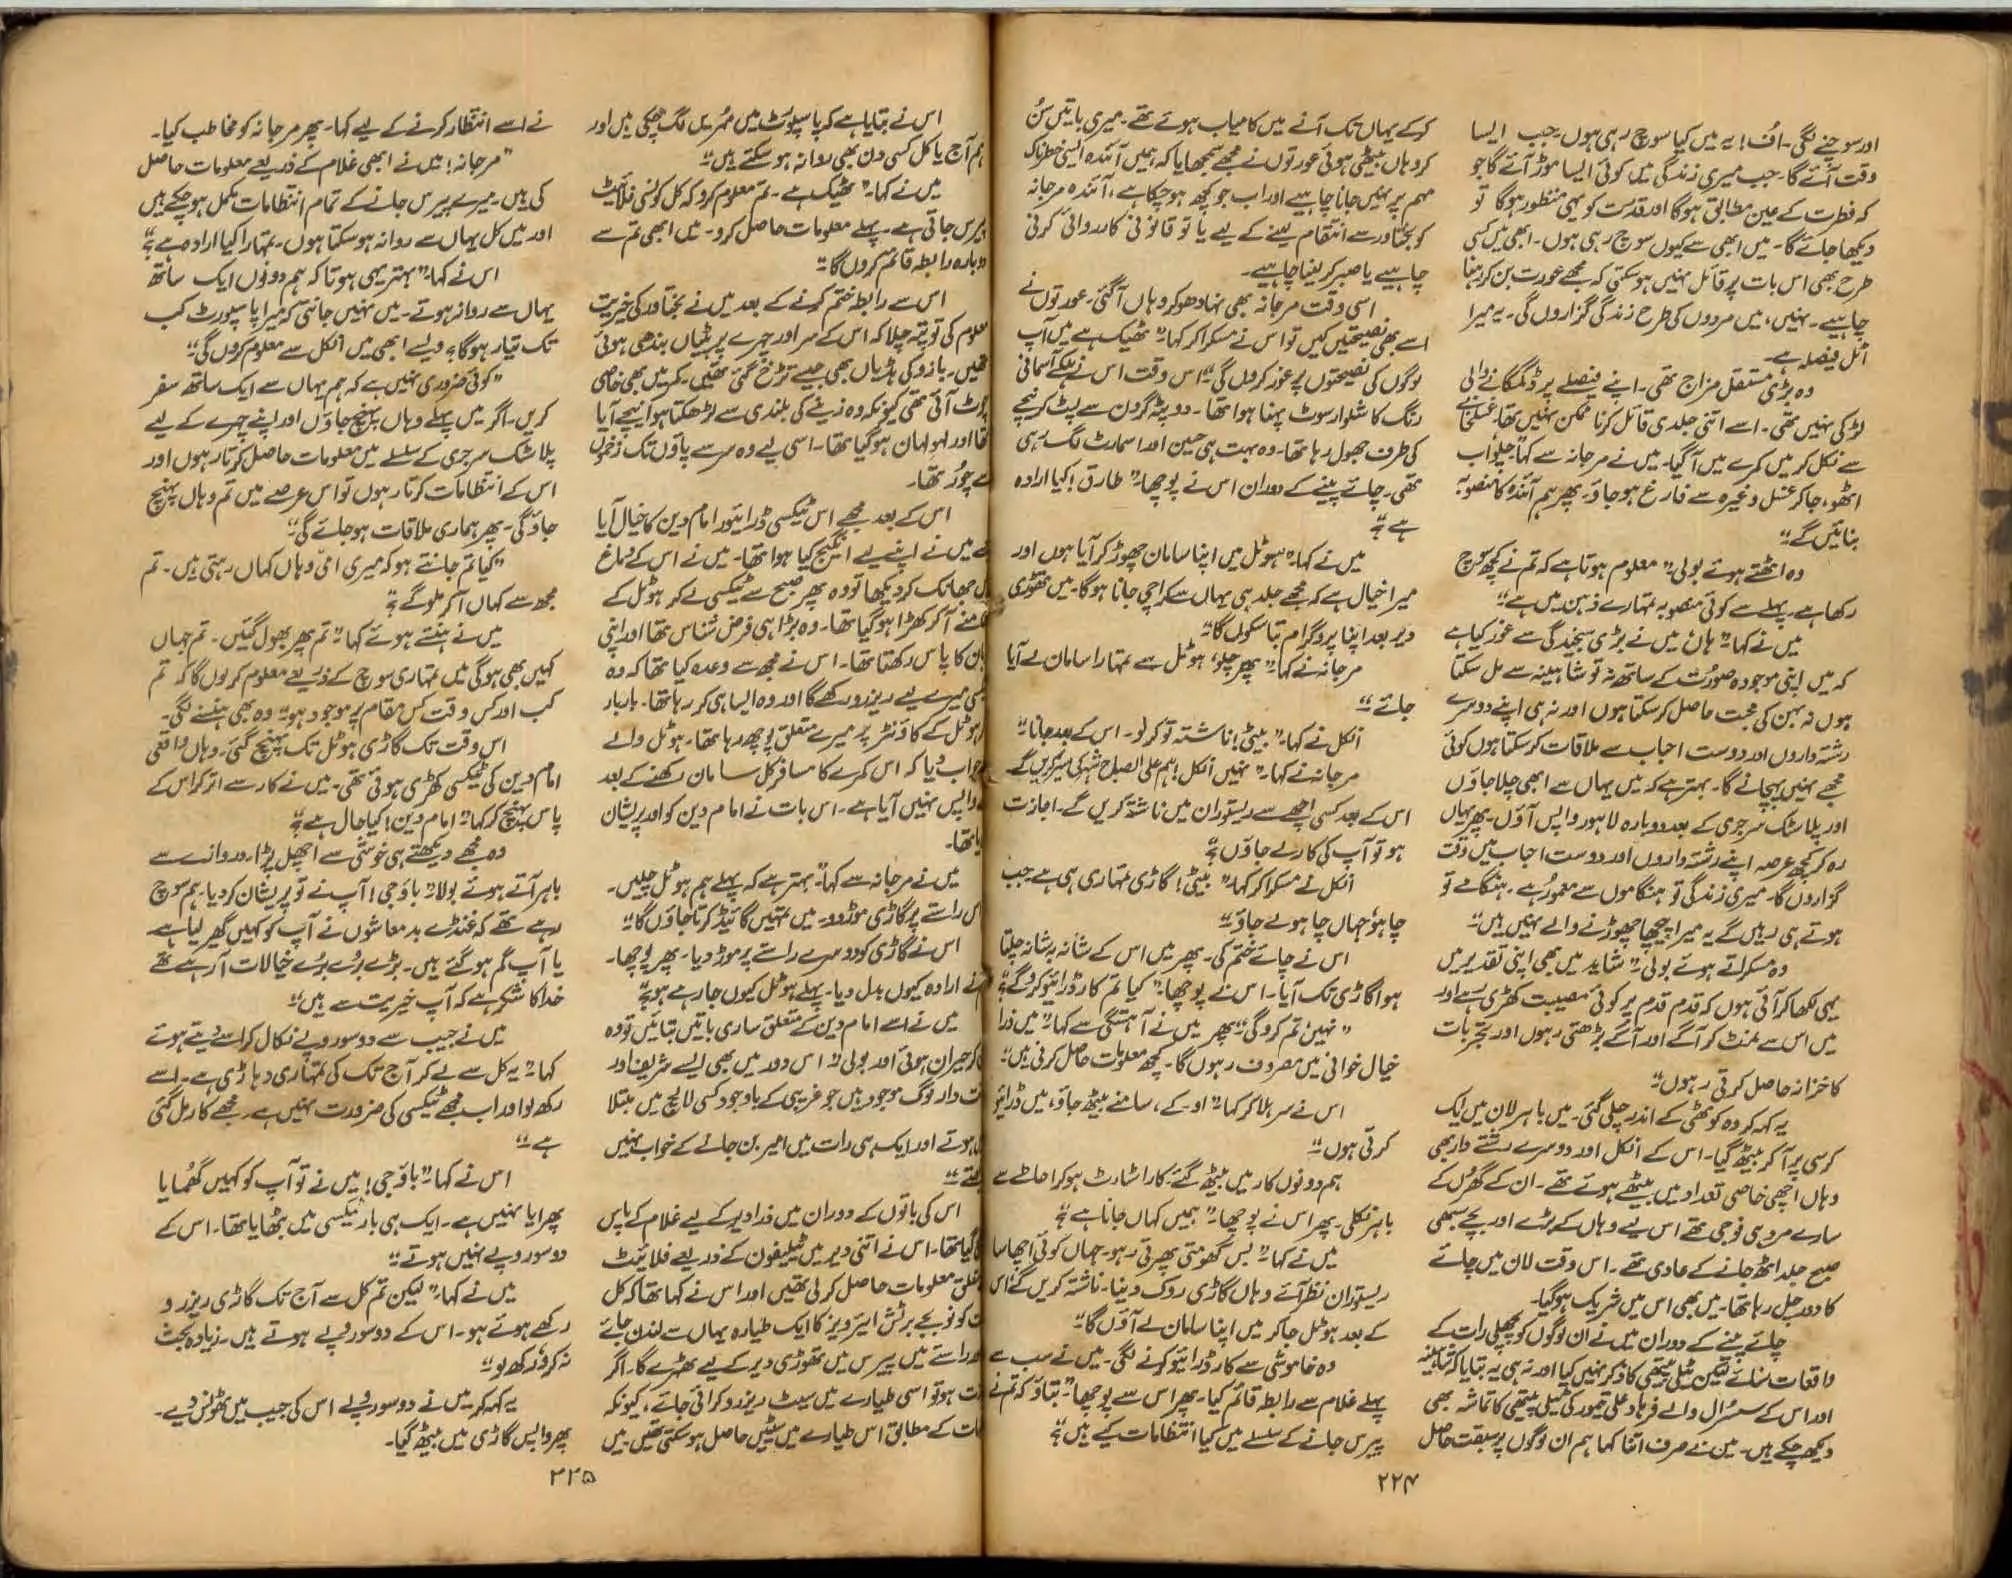 اور سوچنے لگی۔ اُف! یہ میں کیا سوچ رہی ہوں۔ جب ایسا
وقت آئے گا۔ جب میری زندگی میں کوئی ایسا موڑ آئے گا جو
کہ فطرت کے عین مطابق ہوگا اور قدرت کو یہی منظور ہوگا تو
دیکھا جائے گا۔ میں ابھی سے کیوں سوچ رہی ہوں۔ ابھی میں کسی
طرح بھی اس بات پر قائل نہیں ہو سکتی کہ مجھے عورت بن کر رہنا
چاہیے۔ نہیں، میں مردوں کی طرح زندگی گزاروں گی۔ یہ میرا
اٹل فیصلہ ہے۔
وہ بڑی مستقل مزاج تھی۔ اپنے فیصلے پر ڈگمگانے والی
لڑکی نہیں تھی۔ اسے اتنی جلدی قائل کرنا ممکن نہیں تھا۔ غسلخانے
سے نکل کر میں کمرے میں آگیا۔ میں نے مرجانہ سے کہا۔ "چلو اب
اٹھو، جا کر غسل وغیرہ سے فارغ ہو جاؤ۔ پھر ہم آئندہ کا منصوبہ
بنائیں گے۔"
وہ اٹھتے ہوئے بولی۔ "معلوم ہوتا ہے کہ تم نے کچھ سوچ
رکھا ہے۔ پہلے سے کوئی منصوبہ تمہارے ذہن میں ہے۔"
میں نے کہا۔ "ہاں میں نے بڑی سنجیدگی سے غور کیا ہے
کہ میں اپنی موجودہ صورت کے ساتھ نہ تو شاہینہ سے مل سکتا
ہوں نہ بہن کی محبت حاصل کر سکتا ہوں اور نہ ہی اپنے دوسرے
رشتہ داروں اور دوست احباب سے ملاقات کر سکتا ہوں کوئی
مجھے نہیں پہچانے گا۔ بہتر ہے کہ میں یہاں سے ابھی چلا جاؤں
اور پلاسٹک سرجری کے بعد دوبارہ لاہور واپس آؤں۔ پھر یہاں
رہ کر کچھ عرصہ اپنے رشتہ داروں اور دوست احباب میں وقت
گزاروں گا۔ میری زندگی تو ہنگاموں سے معمور ہے۔ ہنگامے تو
ہوتے ہی رہیں گے یہ میرا پیچھا چھوڑنے والے نہیں ہیں۔"
وہ مسکراتے ہوئے بولی۔ "شاید میں بھی اپنی تقدیر میں
یہی لکھا کر آئی ہوں کہ قدم قدم پر کوئی مصیبت کھڑی رہے اور
میں اس سے نمٹ کر آگے اور آگے بڑھتی رہوں اور تجربات
کا خزانہ حاصل کرتی رہوں۔"
یہ کہہ کر وہ کوٹھی کے اندر چلی گئی۔ میں باہر لان میں ایک
کرسی پر آ کر بیٹھ گیا۔ اس کے انکل اور دوسرے رشتے دار بھی
وہاں اچھی خاصی تعداد میں بیٹھے ہوئے تھے۔ ان کے گھر کے
سارے مرد ہی فوجی تھے اس لیے وہاں کے بڑے اور بچے سبھی
صبح جلد اٹھ جانے کے عادی تھے۔ اس وقت لان میں چائے
کا دور چل رہا تھا۔ میں بھی اس میں شریک ہوگیا۔
چائے پینے کے دوران میں نے ان لوگوں کو پچھلی رات کے
واقعات سنائے لیکن ٹیلی پیتھی کا ذکر نہیں کیا اور نہ ہی یہ بتایا کہ شاہینہ
اور اس کے سسرال والے فرہاد علی تیمور کی ٹیلی پیتھی کا تماشہ بھی
دیکھ چکے ہیں۔ میں نے صرف اتنا کہا ہم ان لوگوں پر سبقت حاصل
کر کے یہاں تک آنے میں کامیاب ہوئے تھے۔ میری باتیں سُن
کر وہاں بیٹھی ہوئی عورتوں نے مجھے سمجھایا کہ ہمیں آئندہ ایسی خطرناک
مہم پر نہیں جانا چاہیے اور اب جو کچھ ہو چکا ہے، آئندہ مرجانہ
کو بختاور سے انتقام لینے کے لیے یا تو قانونی کارروائی کرنی
چاہیے یا صبر کر لینا چاہیے۔
اسی وقت مرجانہ بھی نہا دھو کر وہاں آگئی۔ عورتوں نے
اسے بھی نصیحتیں کیں تو اس نے مسکرا کر کہا۔ "ٹھیک ہے میں آپ
لوگوں کی نصیحتوں پر غور کروں گی۔" اس وقت اس نے ہلکے آسمانی
رنگ کا شلوار سوٹ پہنا ہوا تھا۔ دوپٹہ گردن سے لپٹ کر نیچے
کی طرف جھول رہا تھا۔ وہ بہت ہی حسین اور اسمارٹ لگ رہی
تھی۔ چائے پینے کے دوران اس نے پوچھا۔ "طارق! کیا ارادہ
ہے؟"
میں نے کہا۔ "ہوٹل میں اپنا سامان چھوڑ کر آیا ہوں اور
میرا خیال ہے کہ مجھے جلد ہی یہاں سے کراچی جانا ہوگا۔ میں تھوڑی
دیر بعد اپنا پروگرام بتا سکوں گا۔"
مرجانہ نے کہا۔ "پھر چلو، ہوٹل سے تمہارا سامان لے آیا
جائے۔"
انکل نے کہا۔ "بیٹی! ناشتہ تو کر لو۔ اس کے بعد جانا۔"
مرجانہ نے کہا۔ "نہیں انکل! ہم علی الصباح شہر کی سیر کریں گے
اس کے بعد کسی اچھے سے ریستوران میں ناشتہ کریں گے۔ اجازت
ہو تو آپ کی کار لے جاؤں؟"
انکل نے مسکرا کر کہا۔ "بیٹی! گاڑی تمہاری ہی ہے جب
چاہو، جہاں چاہو لے جاؤ۔"
اس نے چائے ختم کی۔ پھر میں اس کے شانہ بشانہ چلتا
ہوا گاڑی تک آیا۔ اس نے پوچھا۔ "کیا تم کار ڈرائیو کرو گے؟"
"نہیں، تم کرو گی۔" پھر میں نے آہستگی سے کہا۔ "میں ذرا
خیال خوانی میں مصروف رہوں گا۔ کچھ معلومات حاصل کرنی ہیں۔"
اس نے سر ہلا کر کہا۔ "او۔کے، سامنے بیٹھ جاؤ، میں ڈرائیو
کرتی ہوں۔"
ہم دونوں کار میں بیٹھ گئے، کار اسٹارٹ ہو کر احاطے سے
باہر نکلی۔ پھر اس نے پوچھا۔ "ہمیں کہاں جانا ہے؟"
میں نے کہا۔ "بس گھومتی پھرتی رہو۔ جہاں کوئی اچھا سا
ریستوران نظر آئے وہاں گاڑی روک دینا۔ ناشتہ کریں گے اس
کے بعد ہوٹل جا کر میں اپنا سامان لے آؤں گا۔"
وہ خاموشی سے کار ڈرائیو کرنے لگی۔ میں نے سب سے
پہلے غلام سے رابطہ قائم کیا۔ پھر اس سے پوچھا۔ "بتاؤ کہ تم نے
پیرس جانے کے سلسلے میں کیا انتظامات کیے ہیں؟"
۲۲۴
اس نے بتایا ہے کہ پاسپورٹ میں مُہریں لگ چکی ہیں اور
ہم آج یا کل کسی دن بھی روانہ ہو سکتے ہیں۔"
میں نے کہا۔ "ٹھیک ہے۔ تم معلوم کرو کہ کل کونسی فلائیٹ
پیرس جاتی ہے۔ پہلے معلومات حاصل کرو۔ میں ابھی تم سے
دوبارہ رابطہ قائم کروں گا۔"
اس سے رابطہ ختم کرنے کے بعد میں نے بختاور کی خیریت
معلوم کی تو پتہ چلا کہ اس کے سر اور چہرے پر پٹیاں بندھی ہوئی
تھیں۔ بازو کی ہڈیاں بھی جیسے تڑخ گئی تھیں۔ کمر میں بھی خاصی
چوٹ آئی تھی کیونکہ وہ زینے کی بلندی سے لڑھکتا ہوا نیچے آیا
تھا اور لہولہان ہوگیا تھا۔ اسی لیے وہ سر سے پاؤں تک زخموں
سے چُور تھا۔
اس کے بعد مجھے اس ٹیکسی ڈرائیور امام دین کا خیال آیا
میں نے اپنے لیے انگیج کیا ہوا تھا۔ میں نے اس کے دماغ
جھانک کر دیکھا تو وہ پھر صبح سے ٹیکسی لے کر ہوٹل کے
سامنے آ کر کھڑا ہوگیا تھا۔ وہ بڑا ہی فرض شناس تھا اور اپنی
زبان کا پاس رکھتا تھا۔ اس نے مجھ سے وعدہ کیا تھا کہ وہ
ٹیکسی میرے لیے ریزرو رکھے گا اور وہ ایسا ہی کر رہا تھا۔ بار بار
ہوٹل کے کاؤنٹر پر میرے متعلق پوچھ رہا تھا۔ ہوٹل والے
جواب دیا کہ اس کمرے کا مسافر کل سامان رکھنے کے بعد
واپس نہیں آیا ہے۔ اس بات نے امام دین کو اور پریشان
تھا۔
میں نے مرجانہ سے کہا۔ "بہتر ہے کہ پہلے ہم ہوٹل چلیں۔
اس راستے پر گاڑی موڑ دو۔ میں تمہیں گائیڈ کرتا جاؤں گا۔"
اس نے گاڑی کو دوسرے راستے پر موڑ دیا۔ پھر پوچھا۔
"تم نے ارادہ کیوں بدل دیا۔ پہلے ہوٹل کیوں جا رہے ہو؟"
میں نے اسے امام دین کے متعلق ساری باتیں بتائیں تو وہ
حیران ہوئی اور بولی۔ "اس دور میں بھی ایسے شریف اور
دار لوگ موجود ہیں جو غریبی کے باوجود کسی لالچ میں مبتلا
ہوتے اور ایک ہی رات میں امیر بن جانے کے خواب نہیں
اس کی باتوں کے دوران میں ذرا دیر کے لیے غلام کے پاس
گیا تھا۔ اس نے اتنی دیر میں ٹیلیفون کے ذریعے فلائیٹ
متعلق معلومات حاصل کر لی تھیں اور اس نے کہا تھا کہ کل
کو نو بجے برٹش ایئرویز کا ایک طیارہ یہاں سے لندن جائے
راستے میں پیرس میں تھوڑی دیر کے لیے ٹھہرے گا۔ اگر
ہو تو اسی طیارے میں سیٹ ریزرو کرائی جائے، کیونکہ
کے مطابق اس طیارے میں سیٹیں حاصل ہو سکتی تھیں۔ میں
نے اسے انتظار کرنے کے لیے کہا۔ پھر مرجانہ کو مخاطب کیا۔
"مرجانہ! میں نے ابھی غلام کے ذریعے معلومات حاصل
کی ہیں۔ میرے پیرس جانے کے تمام انتظامات مکمل ہو چکے ہیں
اور میں کل یہاں سے روانہ ہو سکتا ہوں۔ تمہارا کیا ارادہ ہے؟"
اس نے کہا۔ "بہتر یہی ہوتا کہ ہم دونوں ایک ساتھ
یہاں سے روانہ ہوتے۔ میں نہیں جانتی کہ میرا پاسپورٹ کب
تک تیار ہوگا؟ ویسے ابھی میں انکل سے معلوم کروں گی۔"
"کوئی ضروری نہیں ہے کہ ہم یہاں سے ایک ساتھ سفر
کریں۔ اگر میں پہلے وہاں پہنچ جاؤں اور اپنے چہرے کے لیے
پلاسٹک سرجری کے سلسلے میں معلومات حاصل کرتا رہوں اور
اس کے انتظامات کرتا رہوں تو اس عرصے میں تم وہاں پہنچ
جاؤ گی۔ پھر ہماری ملاقات ہو جائے گی۔"
"کیا تم جانتے ہو کہ میری امی وہاں کہاں رہتی ہیں۔ تم
مجھ سے کہاں آ کر ملو گے؟"
میں نے ہنستے ہوئے کہا۔ "تم پھر بھول گئیں۔ تم جہاں
کہیں بھی ہوگی میں تمہاری سوچ کے ذریعے معلوم کر لوں گا کہ تم
کب اور کس وقت کس مقام پر موجود ہو۔" وہ بھی ہنسنے لگی۔
اس وقت تک گاڑی ہوٹل تک پہنچ گئی۔ وہاں واقعی
امام دین کی ٹیکسی کھڑی ہوئی تھی۔ میں نے کار سے اتر کر اس کے
پاس پہنچ کر کہا۔ "امام دین! کیا حال ہے؟"
وہ مجھے دیکھتے ہی خوشی سے اچھل پڑا۔ دروازے سے
باہر آتے ہوئے بولا۔ "باؤ جی! آپ نے تو پریشان کر دیا۔ ہم سوچ
رہے تھے کہ غنڈے بدمعاشوں نے آپ کو کہیں گھیر لیا ہے
یا آپ گم ہو گئے ہیں۔ بڑے بُرے بُرے خیالات آ رہے تھے
خدا کا شکر ہے کہ آپ خیریت سے ہیں۔"
میں نے جیب سے دو سو روپے نکال کر اسے دیتے ہوئے
کہا۔ "یہ کل سے لے کر آج تک کی تمہاری دہاڑی ہے۔ اسے
رکھ لو اور اب مجھے ٹیکسی کی ضرورت نہیں ہے۔ مجھے کار مل گئی
ہے۔"
اس نے کہا۔ "باؤ جی! میں نے تو آپ کو کہیں گھمایا
پھرایا نہیں ہے۔ ایک ہی بار ٹیکسی میں بٹھایا تھا۔ اس کے
دو سو روپے نہیں ہوتے۔"
میں نے کہا۔ "لیکن تم کل سے آج تک گاڑی ریزرو
رکھے ہوئے ہو۔ اس کے دو سو روپے ہوتے ہیں۔ زیادہ بحث
نہ کرو، رکھ لو۔"
یہ کہہ کر میں نے دو سو روپے اس کی جیب میں ٹھونس دیے۔
پھر واپس گاڑی میں بیٹھ گیا۔
۲۲۵